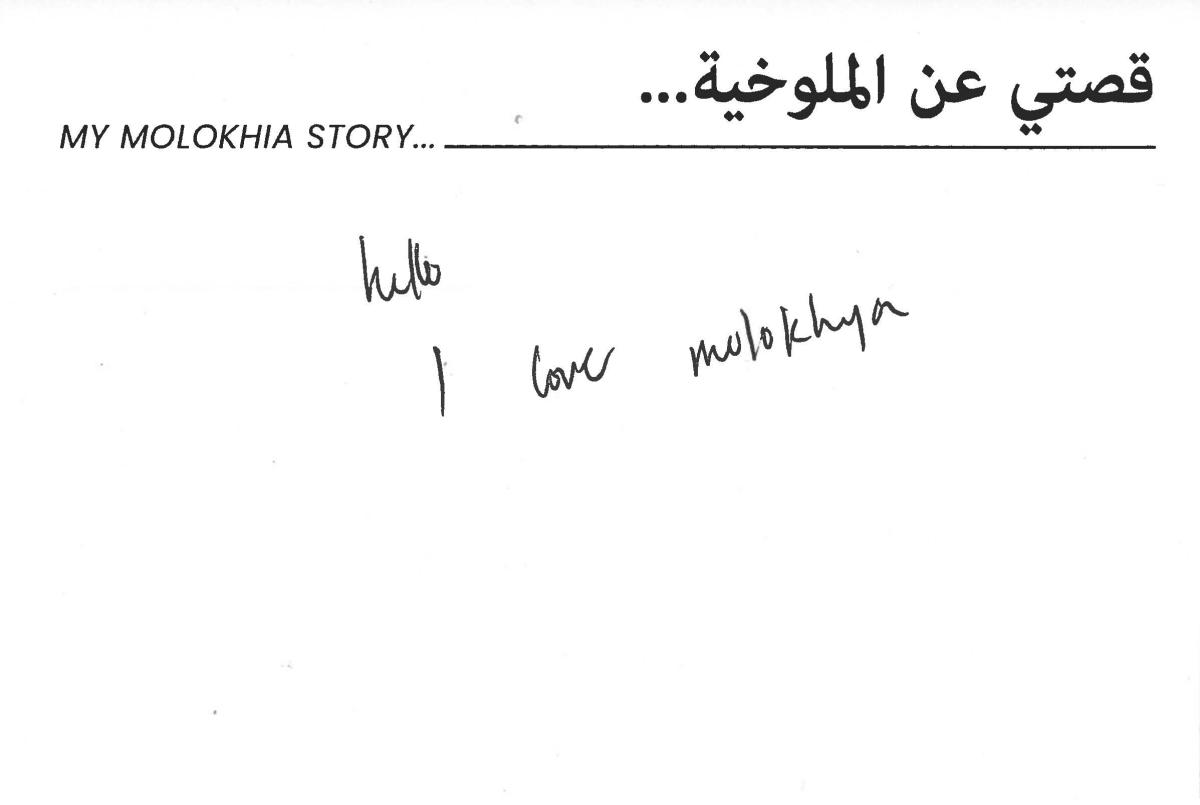 قصتي عن الملوخية...
MY MOLOKHIA STORY...
hello
I love molokhya